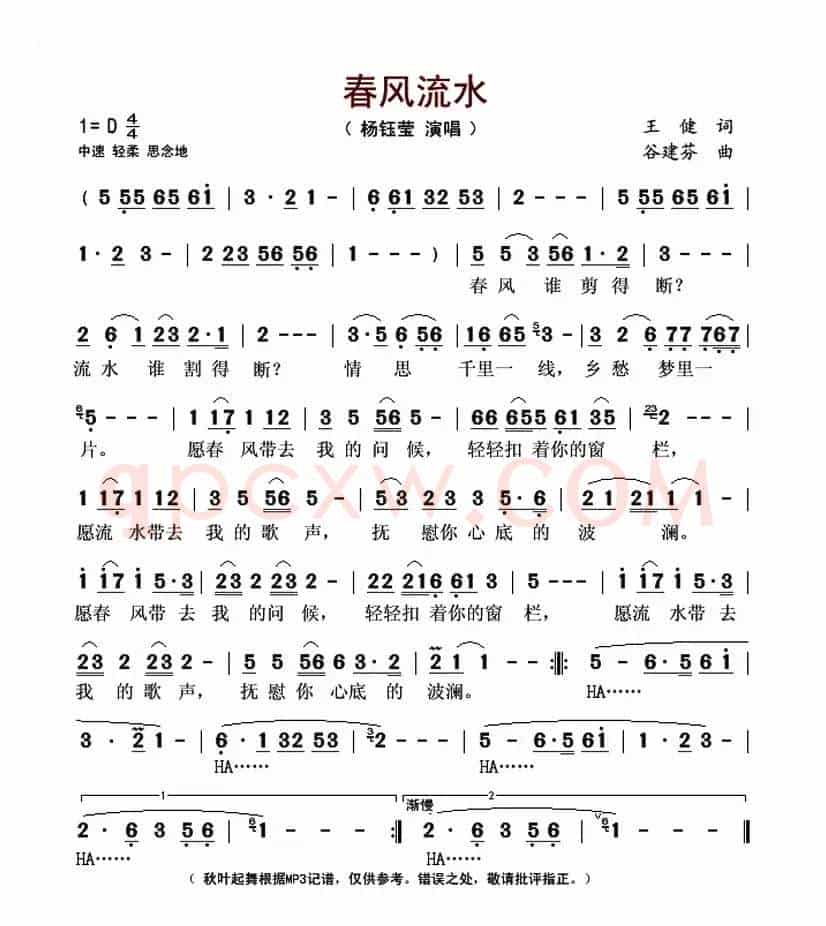 春风流水
1= D 4/4
（ 杨钰莹 演唱 ）
王 健 词
中速 轻柔 思念地
谷建芬 曲
( 5 55 65 61 | 3 · 2 1 - | 6 61 32 53 | 2 - - - | 5 55 65 61 |
1 · 2 3 - | 2 23 56 56 | 1 - - - ) | 5 5 3 56 1 · 2 | 3 - - - |
春 风 谁 剪 得 断？
2 6 1 23 2 · 1 | 2 - - - | 3 · 5 6 56 | 16 65 5 3 - | 3 2 6 77 767 |
流 水 谁 割 得 断？ 情 思 千里一 线，乡 愁 梦里一
6 5 - - - | 1 17 1 12 | 3 5 56 5 - | 66 655 61 35 | 23 2 - - |
片。 愿春 风带去 我 的 问 候， 轻轻扣 着你的窗 栏，
1 17 1 12 | 3 5 56 5 - | 53 23 5 · 6 | 2 1 21 1 - |
愿流 水带去 我 的 歌 声， 抚 慰你 心 底 的 波 澜。
1 17 1 5 · 3 | 23 2 23 2 - | 22 216 61 3 | 5 - - - | 1 17 1 5 · 3 |
愿春 风带 去 我 的问 候， 轻轻扣 着你的窗 栏， 愿流 水带 去
23 2 23 2 - | 5 5 56 6 3 · | 2 1 1 - :||: 5 - 6 · 5 61 |
我 的 歌 声， 抚 慰 你 心底 的 波澜。 HA……
3 · 2 1 - | 6 · 1 32 53 | 3 2 - - - | 5 - 6 · 5 61 | 1 · 2 3 - |
HA…… HA……
1 渐慢 2
2 · 6 3 56 | 6 1 - - - :|| 2 · 6 3 56 | 6 1 - - - ||
HA…… HA……
（ 秋叶起舞根据MP3记谱，仅供参考。错误之处，敬请批评指正。）
qpcxw.COM